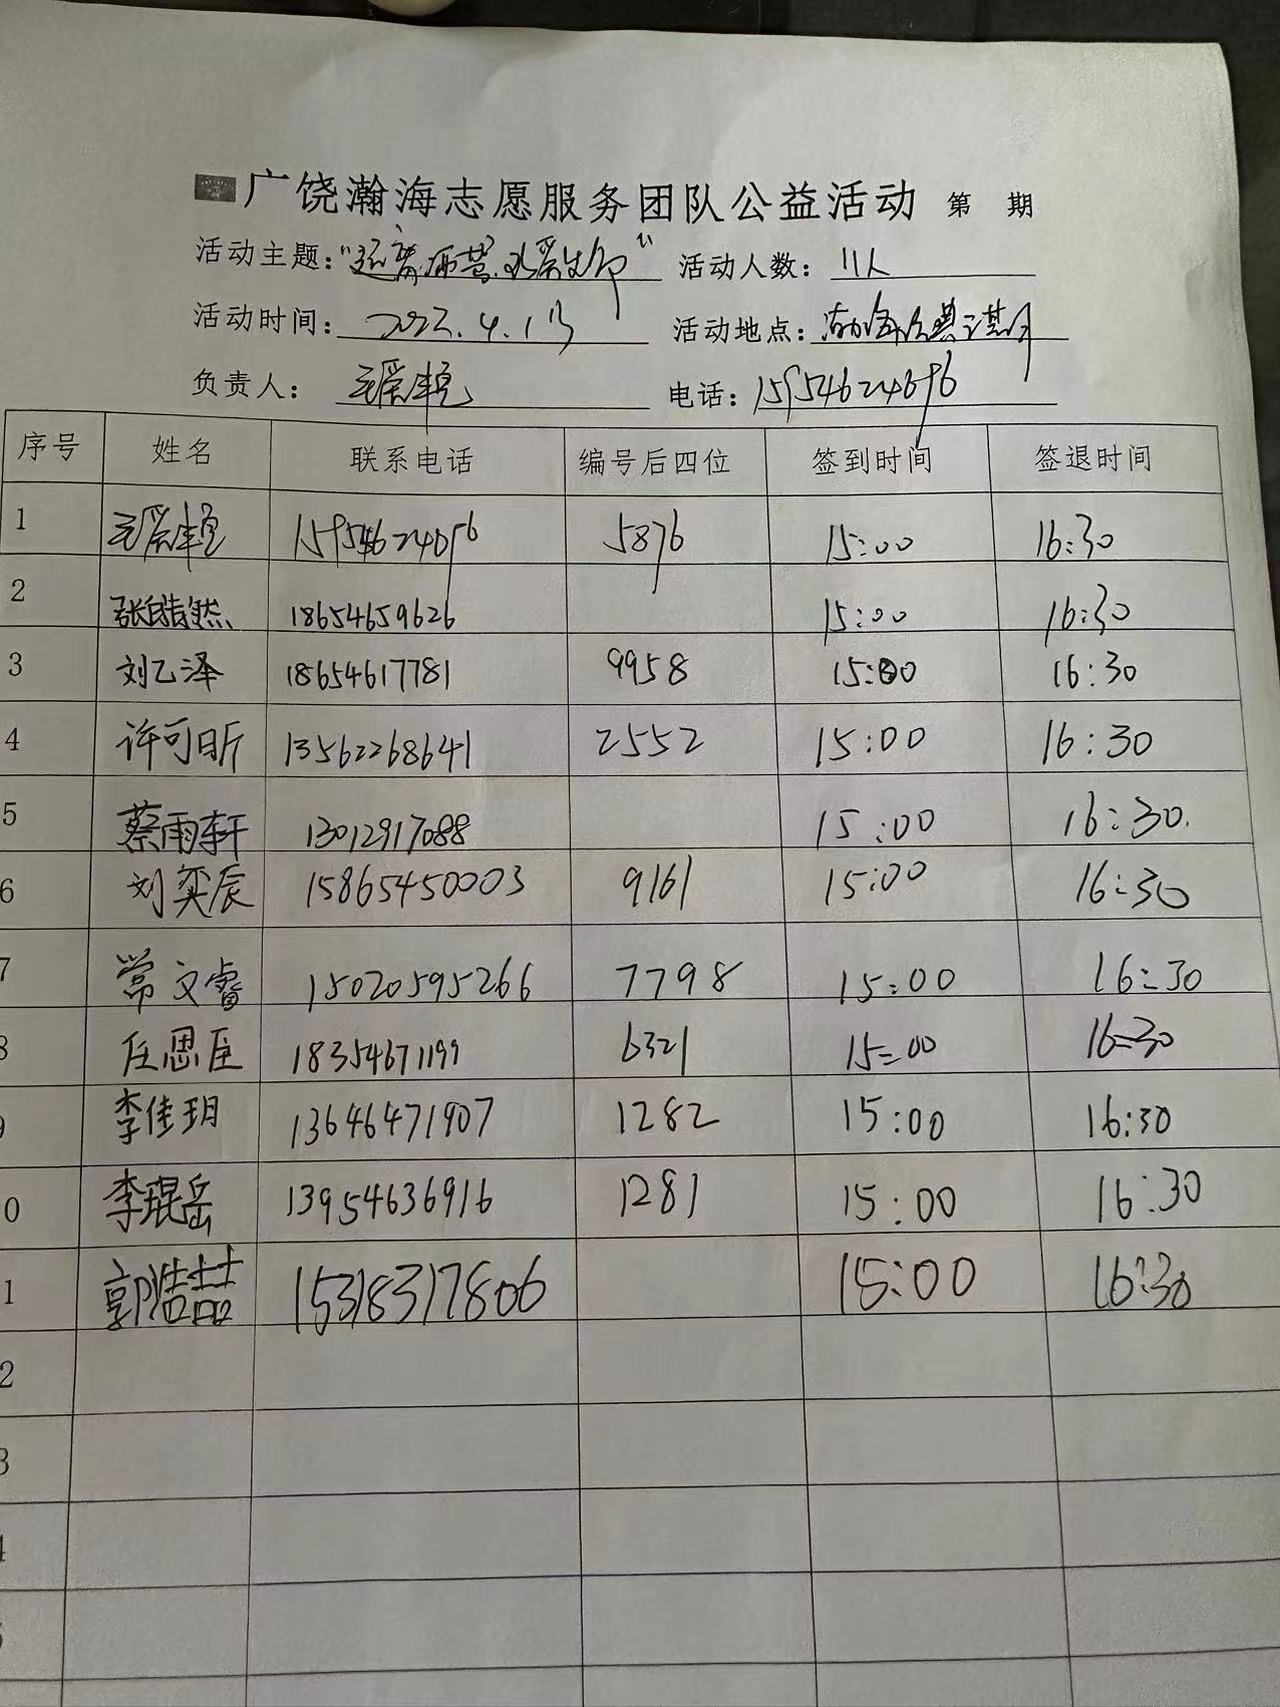 广饶瀚海志愿服务团队公益活动 第 期
活动主题： 活动人数：11人
活动时间：2022.4.1 活动地点：
负责人： 电话：15954624696
序号 姓名 联系电话 编号后四位 签到时间 签退时间
1 5876 15:00 16:30
2 张皓然 18654659626 15:00 16:30
3 刘乙泽 18654617781 9958 15:00 16:30
4 许可昕 13562268641 2552 15:00 16:30
5 蔡雨轩 13012917088 15:00 16:30.
6 刘奕辰 15865450003 9161 15:00 16:30
7 常文睿 15020595266 7798 15:00 16:30
8 任思臣 18354671199 6321 15:00 16:30
9 李佳玥 13646471907 1282 15:00 16:30
0 李琨岳 13954636916 1281 15:00 16:30
1 郭浩喆 15318317806 15:00 16:30
2
3
4
5